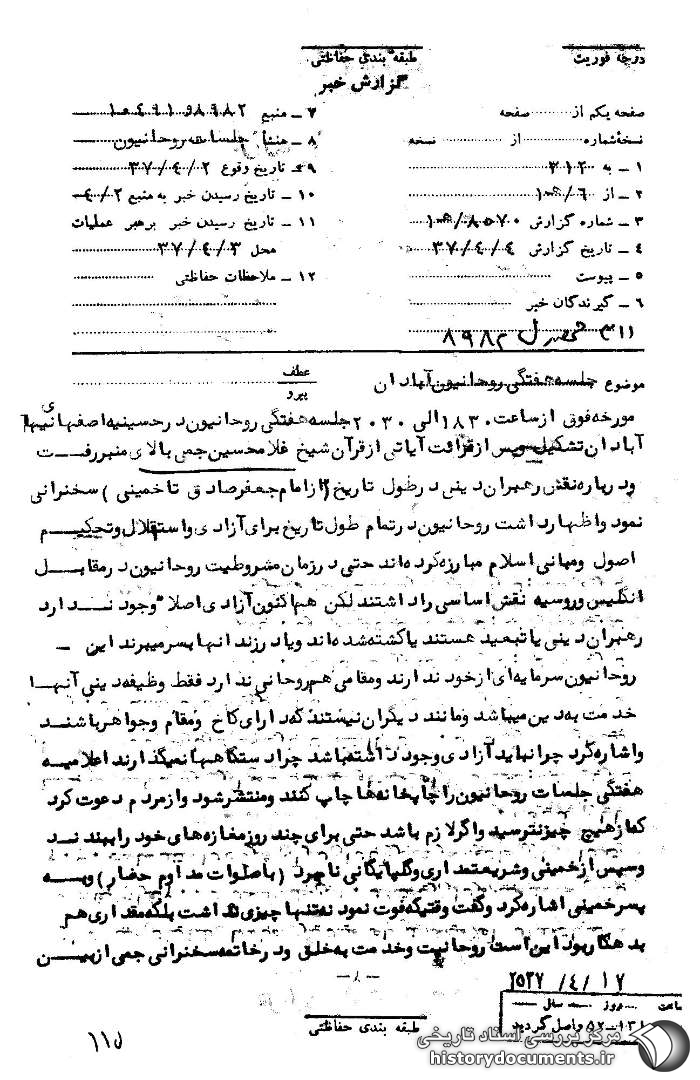 درجه فوریت
طبقه بندی حفاظتی
گزارش خبر
صفحه یکم از صفحه
نسخه شماره از نسخه
۱ ـ به ۳۱۲
۲ ـ از ۶/ه۱۰
۳ ـ شماره گزارش ۸۵۷۰/ه۱۰
۴ ـ تاریخ گزارش ۳۷/۴/۴
۵ ـ پیوست
۶ ـ گیرندگان خبر
۷ ـ منبع ۱۰۴۹۱۹۸۹۸۲
۸ ـ منشا جلسات روحانیون
۹ ـ تاریخ وقوع ۳۷/۴/۲
۱۰ ـ تاریخ رسیدن خبر به منبع ۴/۲
۱۱ ـ تاریخ رسیدن خبر برهبر عملیات
محل ۳۷/۴/۳
۱۲ ـ ملاحظات حفاظتی
۳۱۱
۸۹۸۲
موضوع جلسه هفتگی روحانیون آبادان
عطف
پیرو
مورخه فوق از ساعت ۱۸۳۰ الی ۲۰۳۰ جلسه هفتگی روحانیون در حسینیه اصفهانیهای
آبادان تشکیل سپس از قرائت آیاتی از قرآن شیخ غلامحسین جمی بالای منبر رفت
ودرباره نقش رهبران دینی در طول تاریخ (از امام جعفر صادق تا خمینی) سخنرانی
نمود واظهارداشت روحانیون در تمام طول تاریخ برای آزادی واستقلال وتحکیم
اصول ومبانی اسلام مبارزه کرده اند حتی در زمان مشروطیت روحانیون در مقابل
انگلیس وروسیه نقش اساسی را داشتند لکن هم اکنون آزادی اصلا" وجود ندارد
رهبران دینی یا تبعید هستند یا کشته شده اند ویا در زندانها بسر میبرند این ـ
روحانیون سرمایه ای از خود ندارند ومقامی هم روحانی ندارد فقط وظیفه دینی آنها
خدمت به دین میباشد ومانند دیگران نیستند که دارای کاخ ومقام وجواهر باشند
واشاره کرد چرا نباید آزادی وجود داشته باشد چرا دستگاهها نمیگذارند اعلامیه
هفتگی جلسات روحانیون را چاپخانه ها چاپ کنند ومنتشر شود واز مردم دعوت کرد
که از هیچ چیز نترسید واگر لازم باشد حتی برای چند روز مغازه های خود را ببندند
وسپس از خمینی وشریعتمداری وگلپایگانی نام برد (با صلوات مداوم حضار) وبه
پسر خمینی اشاره کرد وگفت وقتیکه فوت نمود نه تنها چیزی نداشت بلکه مقداری هم
بدهکار بود این است روحانیت وخدمت به خلق ودر خاتمه سخنرانی جمی از بین
ـ۱ـ
۲۵۳۷/۴/۱۷
ساعت روز سال
۱۳۱ـ۵۲ واصل گردید
طبقه بندی حفاظتی
۱۱۵
مرکز بررسی اسناد تاریخی
historydocuments.ir